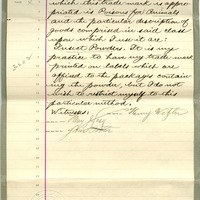 which this trade mark is appro-
priated is Poisons for Animals
and the particular description of
goods comprised in said class
upon which I use it are:
Insect Powders. It is my
practice to have my trade mark
printed on labels which are
affixed to the packages contain-
ing the powder, but I do not
wish to restrict myself to this
particular method.
Witnesses: Henry